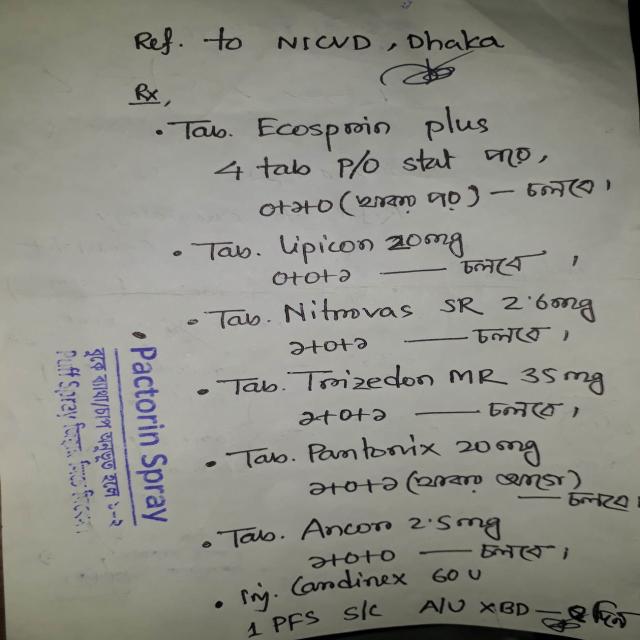 Ref. to NICVD, Dhaka
Rx,
• Tab. Ecosprin plus
4 tab P/O stat পরে,
০+১+০ (খাবার পর) — চলবে।
• Tab. Lipicon 20mg
০+০+১ — চলবে।
• Tab. Nitrovas SR 2.6mg
১+০+১ — চলবে।
• Tab. Trizedon MR 35mg
১+০+১ — চলবে।
• Tab. Pantonix 20mg
১+০+১ (খাবার আগে) — চলবে।
• Tab. Ancor 2.5mg
১+০+০ — চলবে।
• Inj. Cardinex 60 U
1 PFS S/C A/U XBD — দিন
• Pactorin Spray
বুকে ব্যথা/চাপ অনুভূত হলে ১-২
Puff Spray